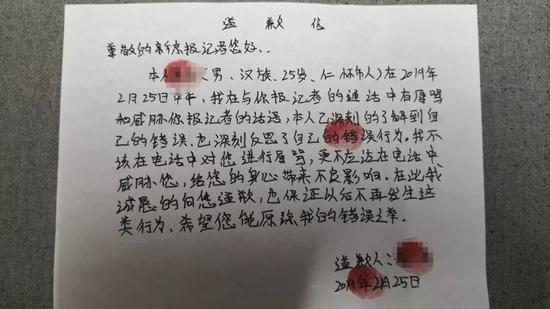 道歉信
尊敬的新京报记者您好：
本人 （男、汉族、25岁、仁怀市人）在2019年
2月25日中午，我在与你报记者的通话中有辱骂
和威胁你报记者的话语，本人已深刻的了解到自
己的错误、也深刻反思了自己的错误行为，我不
该在电话中对您进行辱骂，更不应该在电话中
威胁您，给您的身心带来不良影响，在此我
诚恳的向您道歉，也保证以后不再发生这
类行为、希望您能原谅我的错误之举。
道歉人：
2019年2月25日